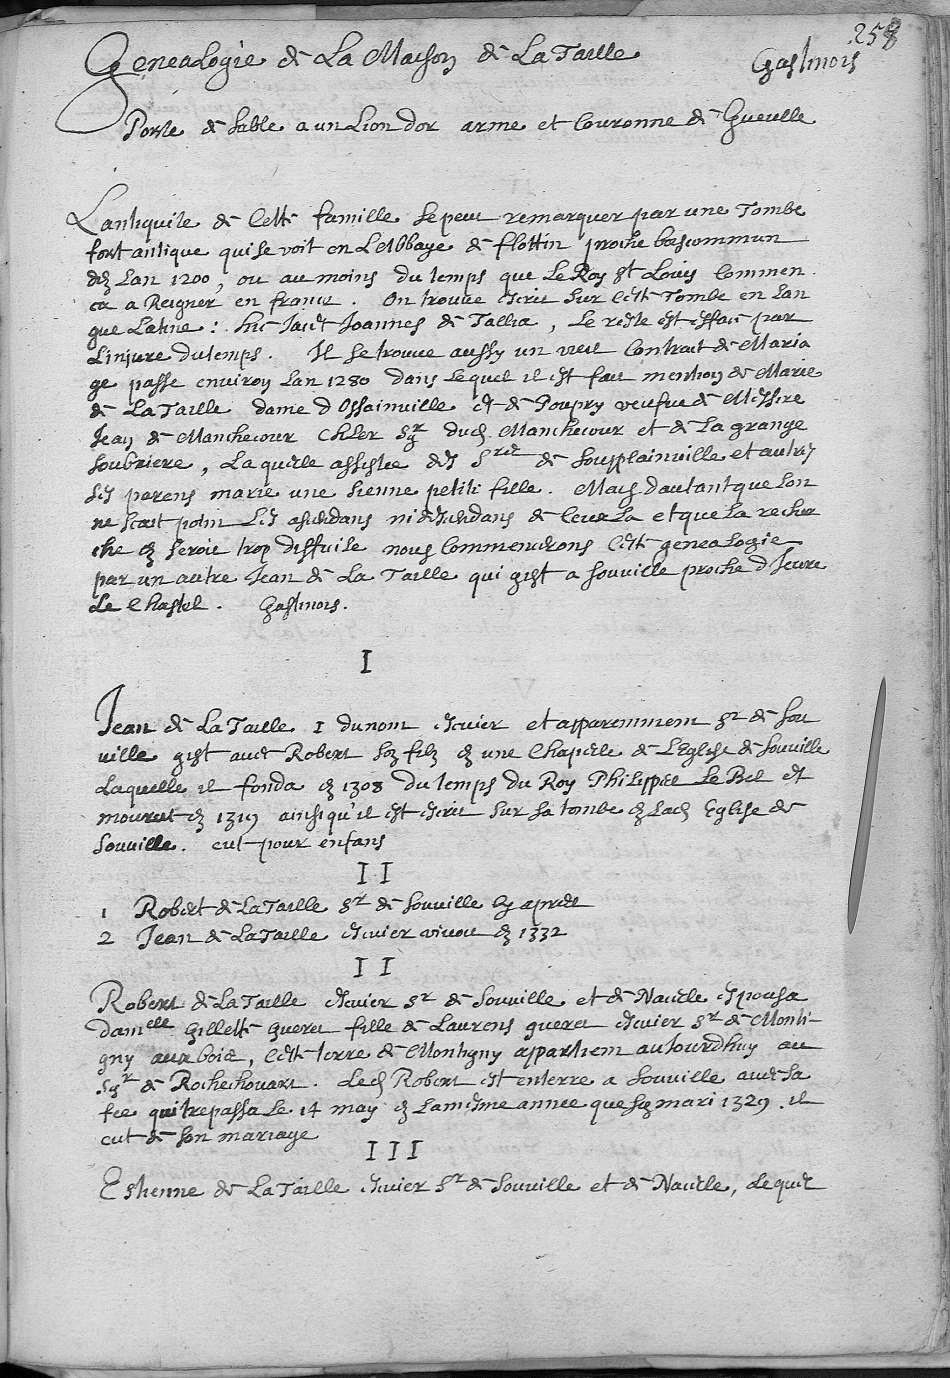 258
Genealogie de La Maison de La Taille
Gastinois
Porte de sable a un Lion dor arme et Couronne de Gueulle
Lantiquite de Cette famille se peut remarquer par une Tombe
fort antique qui se voit en L'Abbaye de flottin proche boscommun
dez Lan 1200, ou au moins du temps que Le Roy St Louis Commen
ca a Reigner en france. On trouve escrit sur Cette Tombe en Lan
gue Latine: hic Jacet Joannes de Tallia, Le reste est efface par
L'injure du temps. Il se trouve aussy un vieil Contract de Maria
ge passe environ Lan 1280 dans Lequel il est fait mention de Marie
de La Taille dame d'Ossainville et de Poupry veufue de Messire
Jean de Manchecour Chler Sgr dud Manchecour et de La grange
soubriere, Laquelle assistee des Sres de Souplainville et autres
ses parens marie une sienne petite fille. Mais dautant que Lon
ne scait point Les ascendans ni descendans de Ceux La et que La recher
che en seroit trop difficile nous Commencerons Cette genealogie
par un autre Jean de La Taille qui gist a Souville proche d'Ieure
Le Chastel. Gastinois.
I
Jean de La Taille I du nom escuier et apparemment Sr de Sou
ville gist avec Robert son filz en une Chapelle de L'Eglise de Souville
Laquelle il fonda en 1308 du temps du Roy Philippe Le Bel et
mourut en 1319 ainsi qu'il est escrit sur sa tombe en Lad Eglise de
Souville. eut pour enfans
II
1 Robert de La Taille Sr de Souville cy apres
2 Jean de La Taille escuier vivoit en 1332
II
Robert de La Taille escuier Sr de Souville et de Nacelle espousa
damelle Gillette Gueret fille de Laurens gueret escuier Sr de Monti-
gny aux bois, Cette terre de Montigny appartient aujourdhuy au
Sgr de Rochechouart. Led Robert est enterre a Souville avec sa
fee qui trepassa Le 14 may en La mesme annee que son mari 1329. il
eut de son mariage
III
Estienne de La Taille escuier Sr de Souville et de Nacelle, Lequel